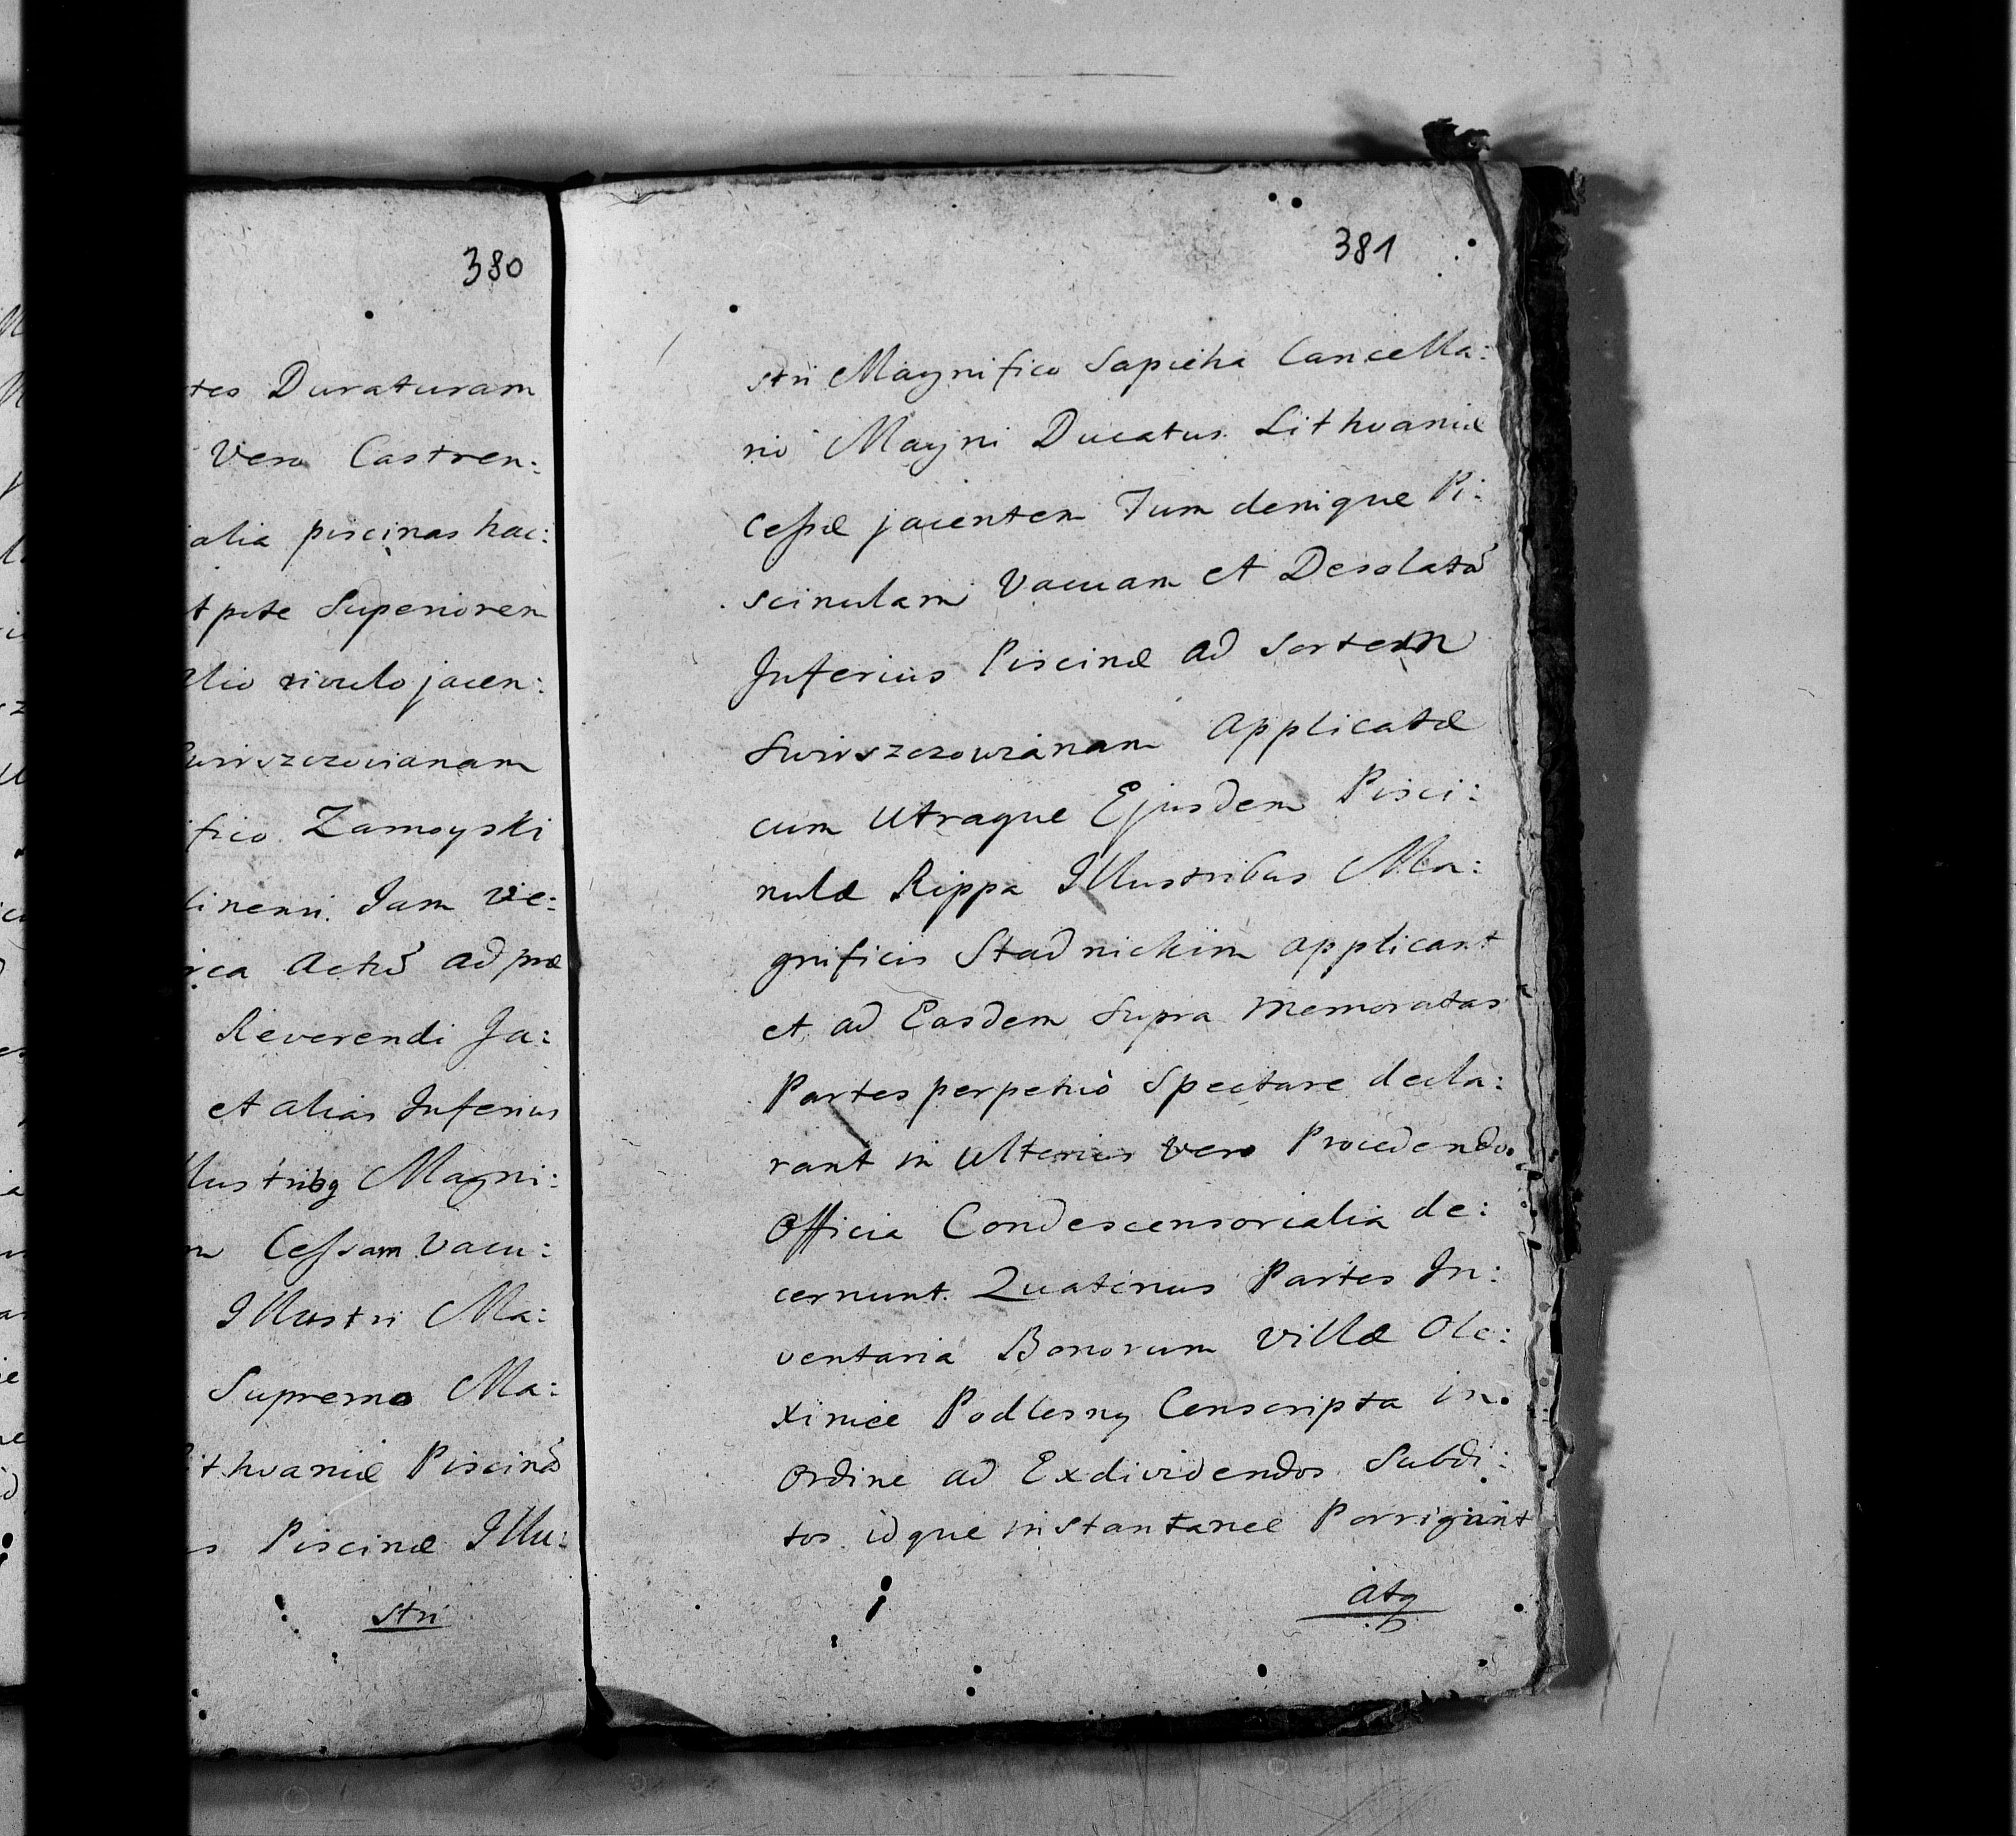 380
tes Duraturam
Vero Castren:
alia piscinas hac:
tpote Superiorem
alio rivulo jacen:
Swirszczovianam
fico Zamoyski
linensi. Jam vie:
rca Actũ ad præ
Reverendi Ja:
et alias Inferius
llustribq Magni:
m Cessam vacu:
Illustri Ma:
Supremo Ma:
ithvaniæ Piscinã
s Piscinæ Illu:
stri
381
stri Magnifico Sapieha Cancella:
rio Magni Ducatus Lithvaniæ
Cessæ jacentem Tum denique Pi:
scinulam Vacuam et Desolatã
Inferius Piscinæ ad sortem
Swirszczowianam applicatæ
cum utraque Ejusdem Pisci:
nulæ Rippa Illustribus Ma:
gnificis Stadnickim applicant
et ad Easdem Supra memoratas
Partes perpetuò Spectare decla:
rant in ulterius vero Procedendo
Officia Condescensorialia de:
cernunt. Quatenus Partes In:
ventaria Bonorum Villæ Ole:
xiniec Podlesny Conscripta in
Ordine ad Exdividendos Subdi:
tos idque instantanee Porrigant
atq